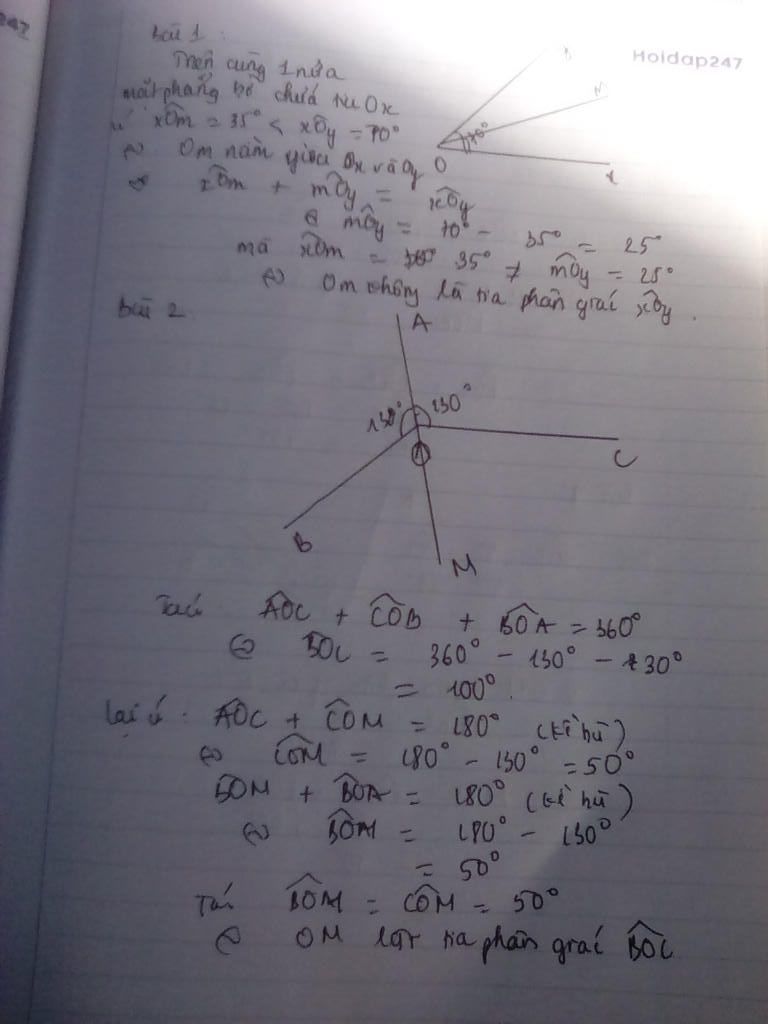 247
Hoidap247
Bài 1 :
Trên cùng 1 nửa
mặt phẳng bờ chứa tia Ox
xÔm = 35° < xÔy = 70°
⇔ Om nằm giữa Ox và Oy
⇔ xÔm + mÔy = xÔy
⇔ mÔy = 70° - 35° = 25°
mà xÔm = 35° ≠ mÔy = 25°
⇔ Om không là tia phân giác xÔy.
70°
O
x
Bài 2
A
130° 130°
O
C
B
M
Ta có AÔC + CÔB + BÔA = 360°
⇔ BÔC = 360° - 130° - 130°
= 100°.
Lại có : AÔC + CÔM = 180° (kề bù)
⇔ CÔM = 180° - 130° = 50°
BÔM + BÔA = 180° (kề bù)
⇔ BÔM = 180° - 130°
= 50°
Ta có BÔM = CÔM = 50°
⇔ OM là tia phân giác BÔC